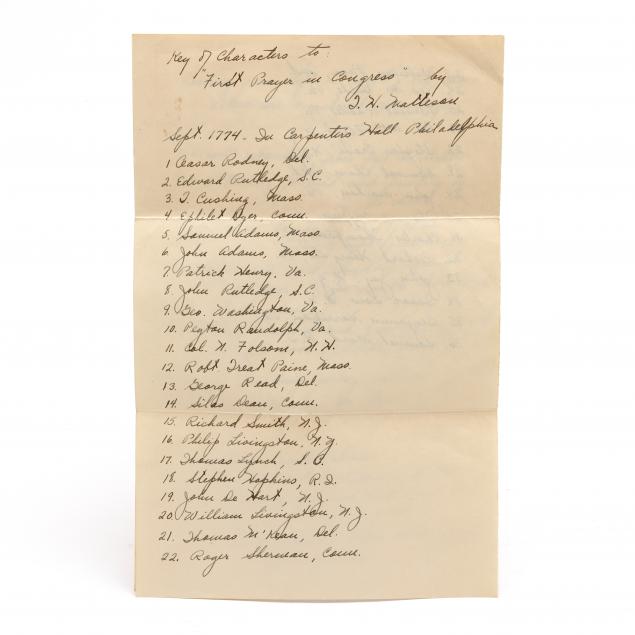 Key of Characters to:
"First Prayer in Congress" by
T. H. Matteson
Sept. 1774 - In Carpenters Hall Philadelphia
1 Ceasar Rodney, Del.
2. Edward Rutledge, S.C.
3. T. Cushing, Mass.
4 Ephilet Dyer, Conn.
5. Samuel Adams, Mass.
6. John Adams, Mass.
7. Patrick Henry, Va.
8. John Rutledge, S.C.
9. Geo. Washington, Va.
10. Peyton Randolph, Va.
11. Col. N. Folsom, N.H.
12. Robt Treat Paine, Mass.
13. George Read, Del.
14. Silas Dean, Conn.
15. Richard Smith, N.J.
16. Philip Livingston, N.Y.
17. Thomas Lynch, S.C.
18. Stephen Hopkins, R.I.
19. John De Hart, N.J.
20. William Livingston, N.J.
21. Thomas M'Kean, Del.
22. Roger Sherman, Conn.